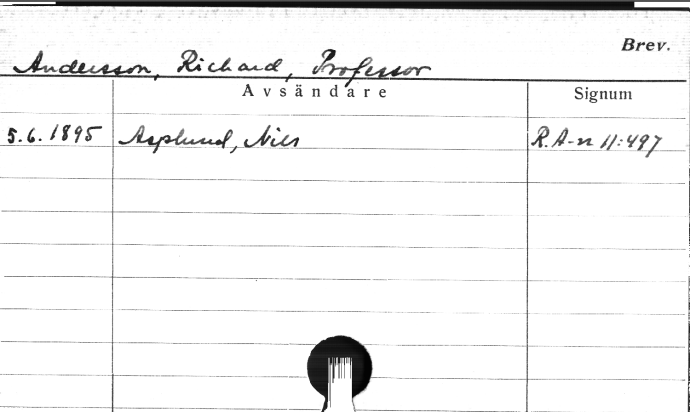 Brev.
Andersson, Richard, Professor
Avsändare Signum
5.6.1895 Asplund, Nils R.A-n 11:497